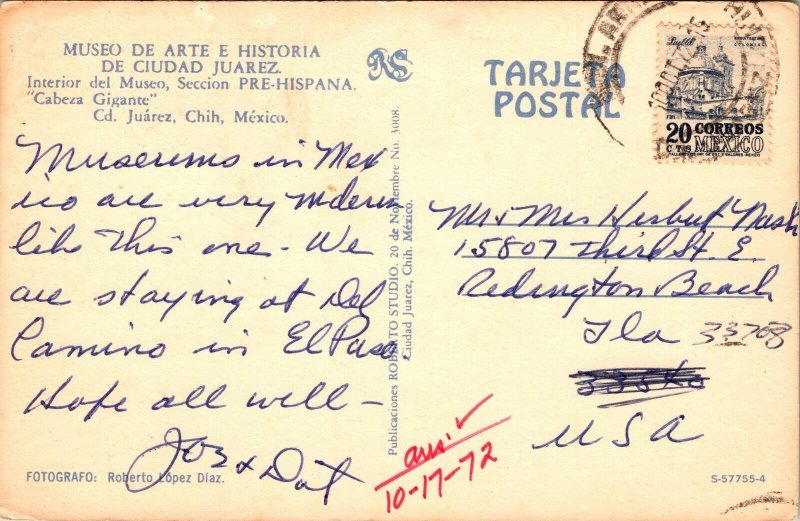 MUSEO DE ARTE E HISTORIA
DE CIUDAD JUAREZ.
Interior del Museo, Seccion PRE-HISPANA.
"Cabeza Gigante"
Cd. Juárez, Chih, México.
RS
TARJETA
POSTAL
Puebla
ARQUITECTURA
COLONIAL
20 CORREOS
CTS MEXICO
Museums in Mex
ico are very modern
like this one - We
are staying at Del
Camino in El Paso
Hope all well -
Joe & Dot
Publicaciones ROBERTO STUDIO. 20 de Noviembre No. 3008.
Ciudad Juarez, Chih. México.
Mr & Mrs Herbert Nash
15807 Third St. E.
Redington Beach
Fla 33708
USA
ans. ✓
10-17-72
FOTOGRAFO: Roberto López Díaz.
S-57755-4